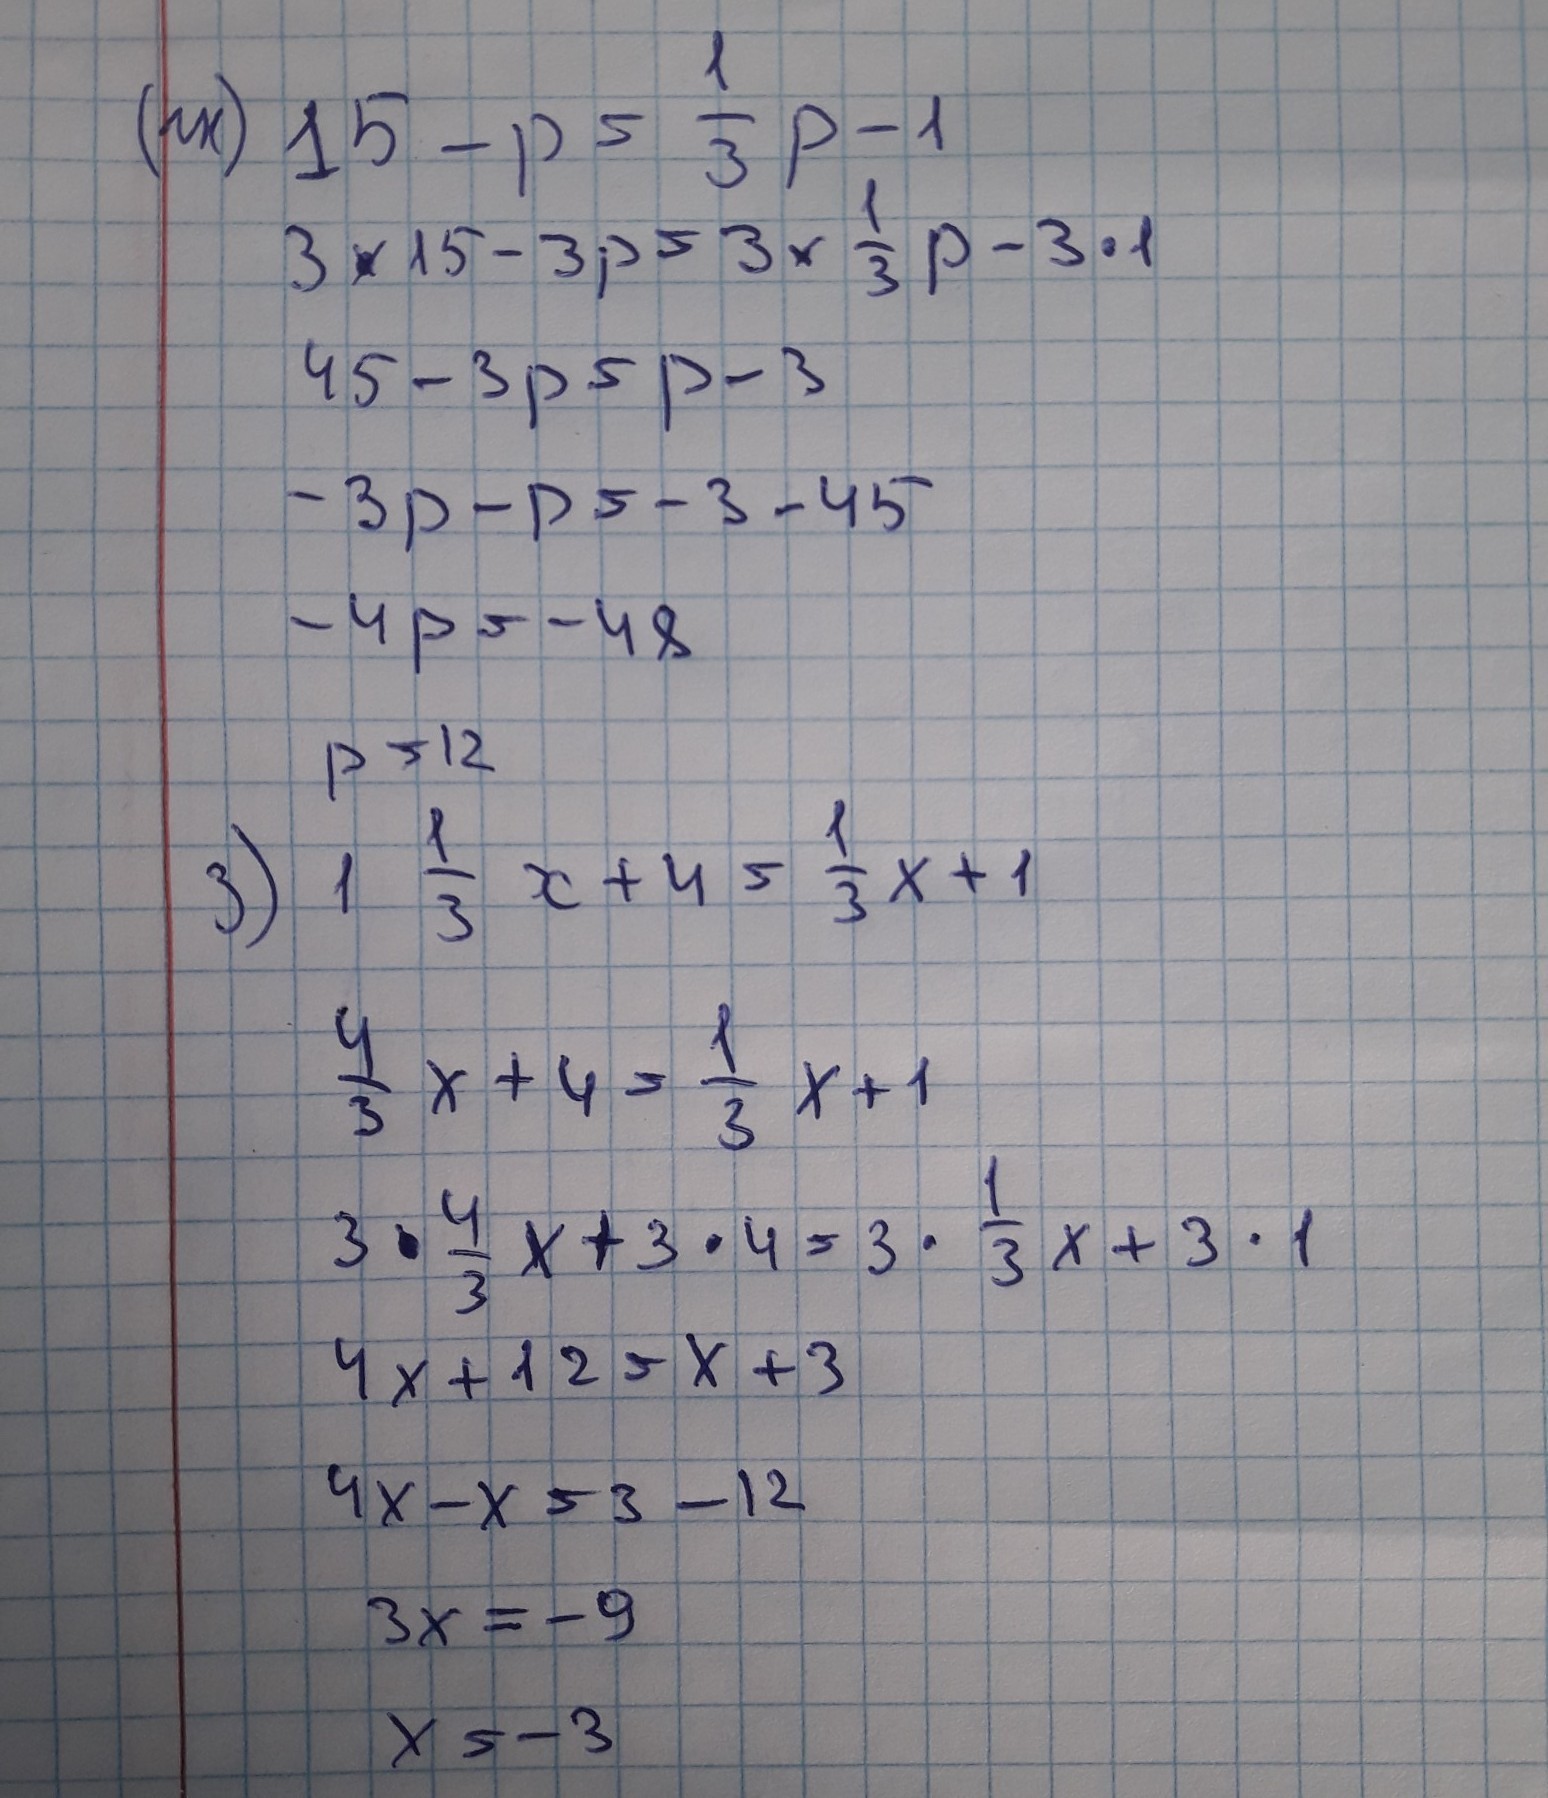 (ж) 15 - p = 1/3 p - 1
3 × 15 - 3p = 3 × 1/3 p - 3 · 1
45 - 3p = p - 3
-3p - p = -3 - 45
-4p = -48
p = 12
з) 1 1/3 x + 4 = 1/3 x + 1
4/3 x + 4 = 1/3 x + 1
3 · 4/3 x + 3 · 4 = 3 · 1/3 x + 3 · 1
4x + 12 = x + 3
4x - x = 3 - 12
3x = -9
x = -3